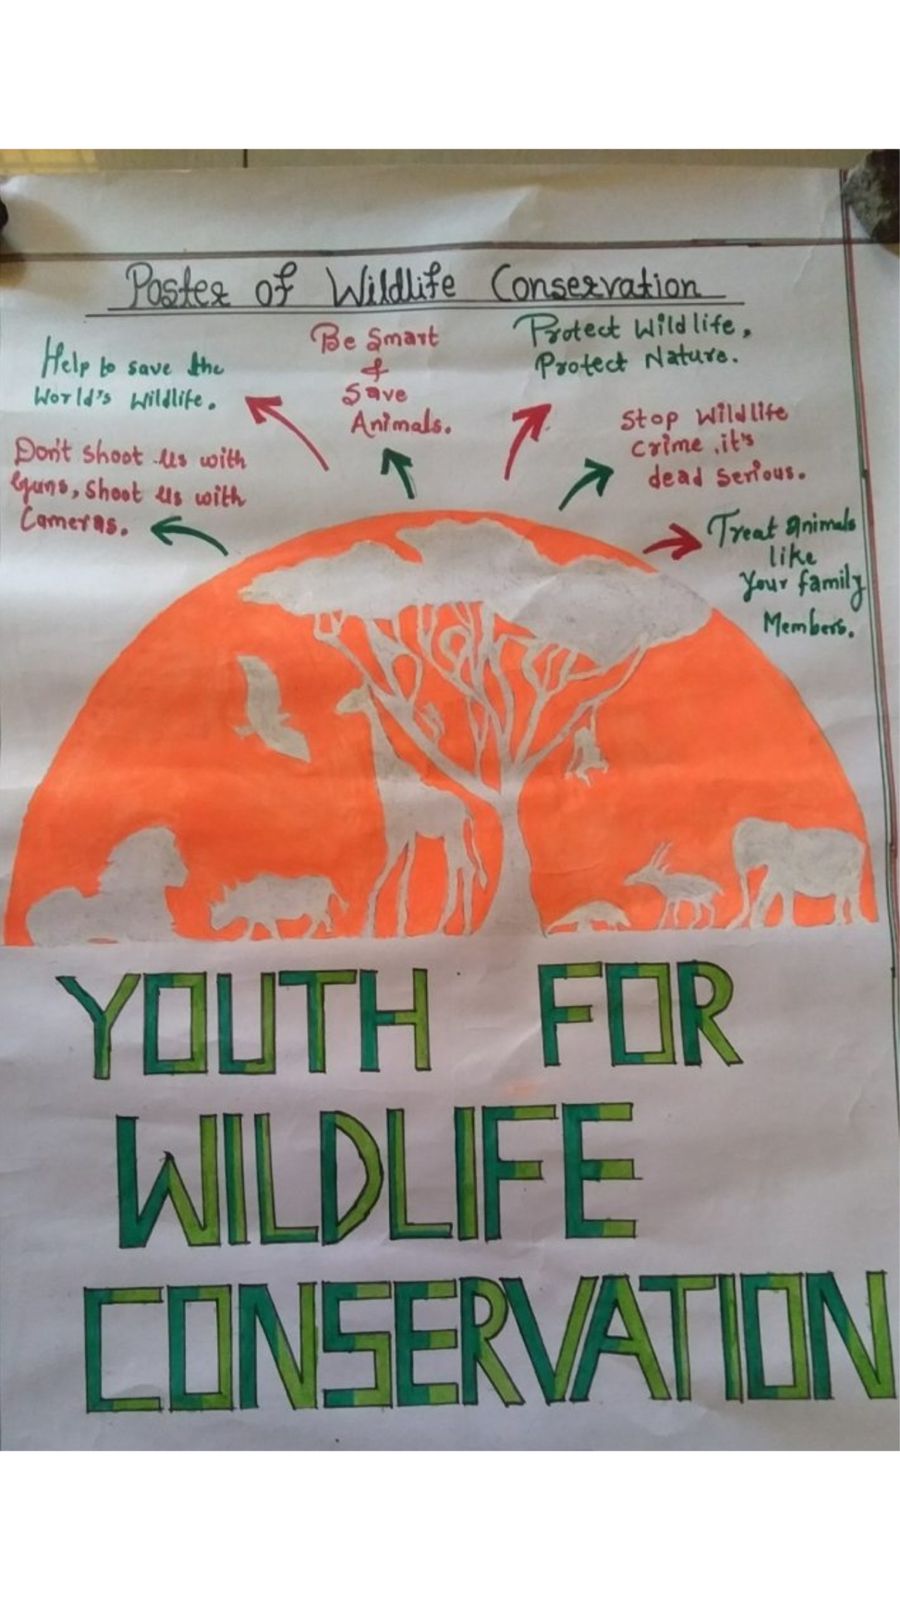 Poster of Wildlife Conservation
Help to save the
World's Wildlife.
Be Smart
&
Save
Animals.
Protect Wildlife,
Protect Nature.
Don't shoot us with
Guns, shoot us with
Cameras.
Stop Wildlife
Crime, it's
dead serious.
Treat animals
like
Your family
Members.
YOUTH FOR
WILDLIFE
CONSERVATION